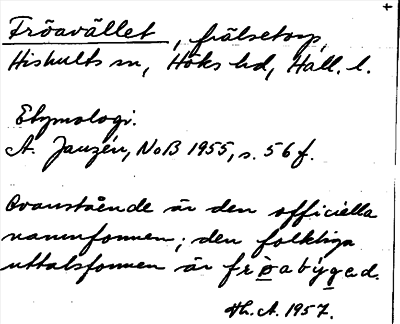 Fröavället, frälsetorp,
Hishults sn, Höks hd, Hall. l.
Etymologi.
A. Janzén, NoB 1955, s. 56 f.
Ovanstående är den officiella
namnformen; den folkliga
uttalsformen är frøabýgəd.
Th. A. 1957.